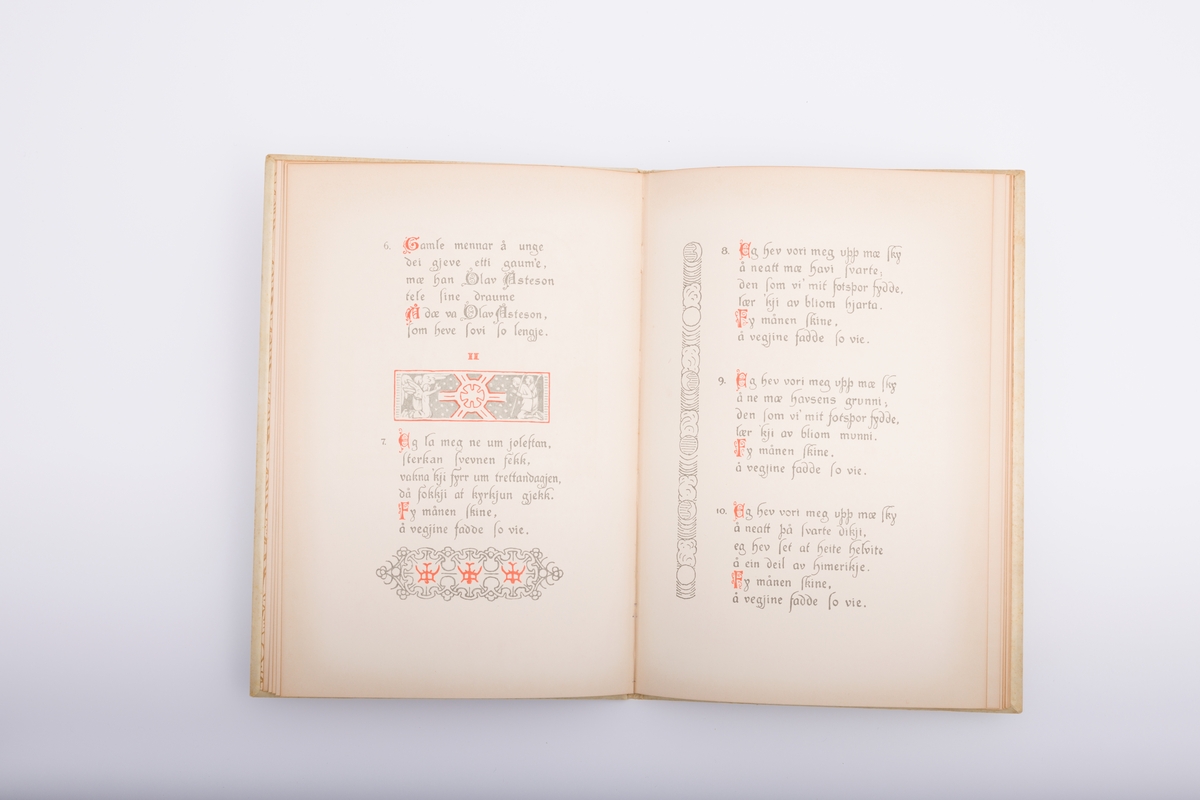 6. Gamle mennar å unge
dei gjeve etti gaum'e,
mæ han Olav Åsteson
tele sine draume
Å dæ va Olav Åsteson,
som heve sovi so lengje.
II
7. Eg la meg ne um joleftan,
sterkan svevnen fekk,
vakna 'kji fyrr um trettandagjen,
då fokkji at kyrkjun gjekk.
Fy månen skine,
å vegjine fadde so vie.
8. Eg hev vori meg upp mæ sky
å neatt mæ havi svarte;
den som vi' mit fotspor fydde,
lær 'kji av bliom hjarta.
Fy månen skine,
å vegjine fadde so vie.
9. Eg hev vori meg upp mæ sky
å ne mæ havsens grunni;
den som vi' mit fotspor fydde,
lær 'kji av bliom munni.
Fy månen skine,
å vegjine fadde so vie.
10. Eg hev vori meg upp mæ sky
å neatt på svarte dikji,
eg hev set at heite helvite
å ein deil av himerikje.
Fy månen skine,
å vegjine fadde so vie.